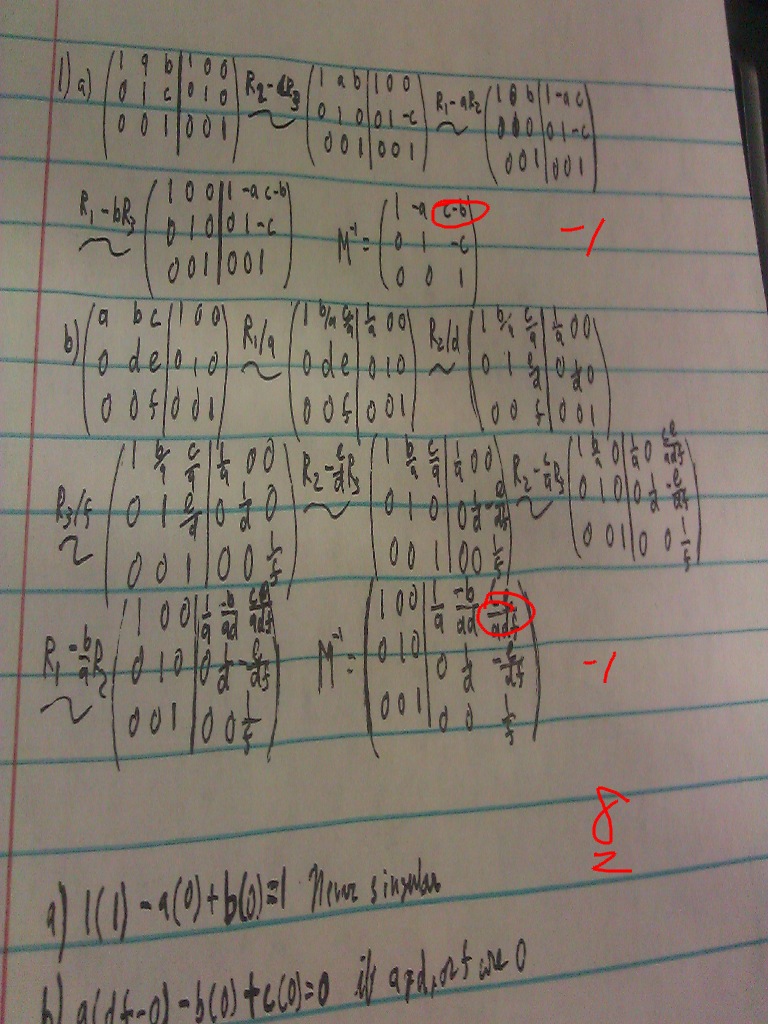 1) a) (1 a b | 1 0 0; 0 1 c | 0 1 0; 0 0 1 | 0 0 1) R₂-cR₃ ~ (1 a b | 1 0 0; 0 1 0 | 0 1 -c; 0 0 1 | 0 0 1) R₁-aR₂ ~ (1 0 b | 1 -a c; 0 1 0 | 0 1 -c; 0 0 1 | 0 0 1)
R₁-bR₃ ~ (1 0 0 | 1 -a c-b; 0 1 0 | 0 1 -c; 0 0 1 | 0 0 1) M⁻¹= (1 -a c-b; 0 1 -c; 0 0 1) -1
b) (a b c | 1 0 0; 0 d e | 0 1 0; 0 0 f | 0 0 1) R₁/a ~ (1 b/a c/a | 1/a 0 0; 0 d e | 0 1 0; 0 0 f | 0 0 1) R₂/d ~ (1 b/a c/a | 1/a 0 0; 0 1 e/d | 0 1/d 0; 0 0 f | 0 0 1)
R₃/f ~ (1 b/a c/a | 1/a 0 0; 0 1 e/d | 0 1/d 0; 0 0 1 | 0 0 1/f) R₂-e/d R₃ ~ (1 b/a c/a | 1/a 0 0; 0 1 0 | 0 1/d -e/df; 0 0 1 | 0 0 1/f) R₂-c/a R₃ ~ (1 b/a 0 | 1/a 0; 0 1 0 | 0 1/d -e/df; 0 0 1 | 0 0 1/f)
R₁-b/a R₂ ~ (1 0 0 | 1/a -b/ad; 0 1 0 | 0 1/d -e/df; 0 0 1 | 0 0 1/f) M⁻¹= (1 0 0 | 1/a -b/ad; 0 1 0 | 0 1/d -e/df; 0 0 1 | 0 0 1/f) -1
8
a) 1(1)-a(0)+b(0)=1 Never singular
b) a(df-0)-b(0)+c(0)=0 if a, d, or f are 0